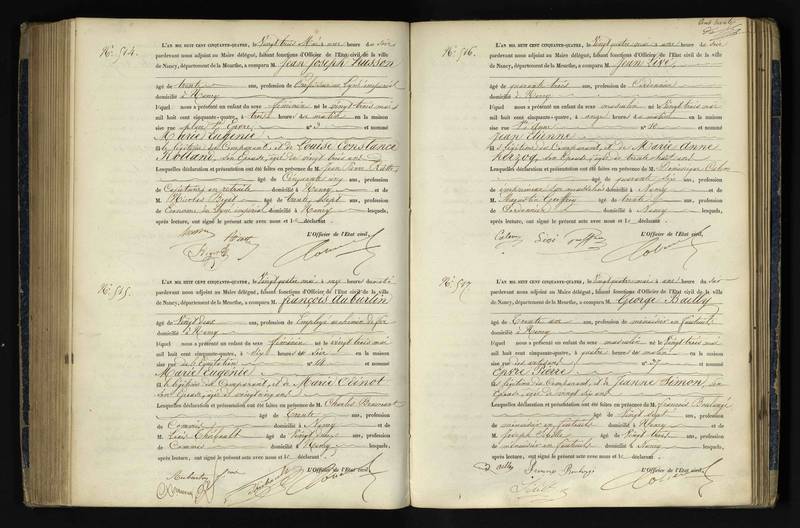 No. 514.
L'AN MIL HUIT CENT CINQUANTE-QUATRE, le Vingt trois Mai à une heure du soir
pardevant nous adjoint au Maire délégué, faisant fonctions d'Officier de l'Etat civil de la ville
de Nancy, département de la Meurthe, a comparu M. Jean Joseph Husson
âgé de trente ans, profession de au Lycée impérial
domicilié à Nancy
lequel nous a présenté un enfant du sexe féminin né le vingt trois mai
mil huit cent cinquante-quatre, à trois heures du matin en la maison
sise rue No. 3 et nommé
Marie Eugénie
fille légitime du Comparant, et de Louise Constance
Rolland, son Epouse, âgée de vingt trois ans
Lesquelles déclaration et présentation ont été faites en présence de M. Jean Pierre
âgé de Cinquante ans, profession
de Capitaine en retraite domicilié à Nancy et de
M. Nicolas Bigel âgé de trente sept ans, profession
de Econome du Lycée impérial domicilié à Nancy lesquels,
après lecture, ont signé le présent acte avec nous et le déclarant.
L'Officier de l'Etat civil,
No. 515.
L'AN MIL HUIT CENT CINQUANTE-QUATRE, le Vingt quatre mai à onze heures du matin
pardevant nous adjoint au Maire délégué, faisant fonctions d'Officier de l'Etat civil de la ville
de Nancy, département de la Meurthe, a comparu M. François Auburtin
âgé de Vingt deux ans, profession de Employé au chemin de fer
domicilié à Nancy
lequel nous a présenté un enfant du sexe féminin né le vingt trois mai
mil huit cent cinquante-quatre, à dix heures du soir en la maison
sise rue de l'Equitation No. 14 et nommé
Marie Eugénie
fille légitime du Comparant, et de Marie Clénot
son Epouse, âgée de vingt cinq ans
Lesquelles déclaration et présentation ont été faites en présence de M. Charles
âgé de Trente ans, profession
de Commis domicilié à Nancy et de
M. Louis âgé de Vingt deux ans, profession
de Commis domicilié à Nancy lesquels,
après lecture, ont signé le présent acte avec nous et le déclarant.
L'Officier de l'Etat civil,
No. 516.
L'AN MIL HUIT CENT CINQUANTE-QUATRE, le Vingt quatre mai à une heure du soir
pardevant nous adjoint au Maire délégué, faisant fonctions d'Officier de l'Etat civil de la ville
de Nancy, département de la Meurthe, a comparu M. Jean
âgé de quarante trois ans, profession de Cordonnier
domicilié à Nancy
lequel nous a présenté un enfant du sexe masculin né le Vingt trois mai
mil huit cent cinquante-quatre, à onze heures du matin en la maison
sise rue St. No. 10 et nommé
Jean Etienne
fils légitime du Comparant, et de Marie Anne
Herzog, son Epouse, âgée de trente huit ans
Lesquelles déclaration et présentation ont été faites en présence de M. Dominique
âgé de quarante six ans, profession
de imprimeur domicilié à Nancy et de
M. Geoffroy âgé de trente ans, profession
de Cordonnier domicilié à Nancy lesquels,
après lecture, ont signé le présent acte avec nous et le déclarant.
L'Officier de l'Etat civil,
No. 517
L'AN MIL HUIT CENT CINQUANTE-QUATRE, le Vingt quatre mai à une heure du soir
pardevant nous adjoint au Maire délégué, faisant fonctions d'Officier de l'Etat civil de la ville
de Nancy, département de la Meurthe, a comparu M. George Bailly
âgé de Trente un ans, profession de menuisier en fauteuils
domicilié à Nancy
lequel nous a présenté un enfant du sexe masculin né le Vingt trois mai
mil huit cent cinquante-quatre, à quatre heures du matin en la maison
sise rue des artisans No. 27 et nommé
Pierre
fils légitime du Comparant, et de Jeanne Simon, son
Epouse, âgée de vingt six ans
Lesquelles déclaration et présentation ont été faites en présence de M. François Boulangé
âgé de Vingt sept ans, profession
de menuisier en fauteuils domicilié à Nancy et de
M. Joseph âgé de Vingt trois ans, profession
de menuisier en fauteuils domicilié à Nancy lesquels,
après lecture, ont signé le présent acte avec nous et le déclarant.
L'Officier de l'Etat civil,